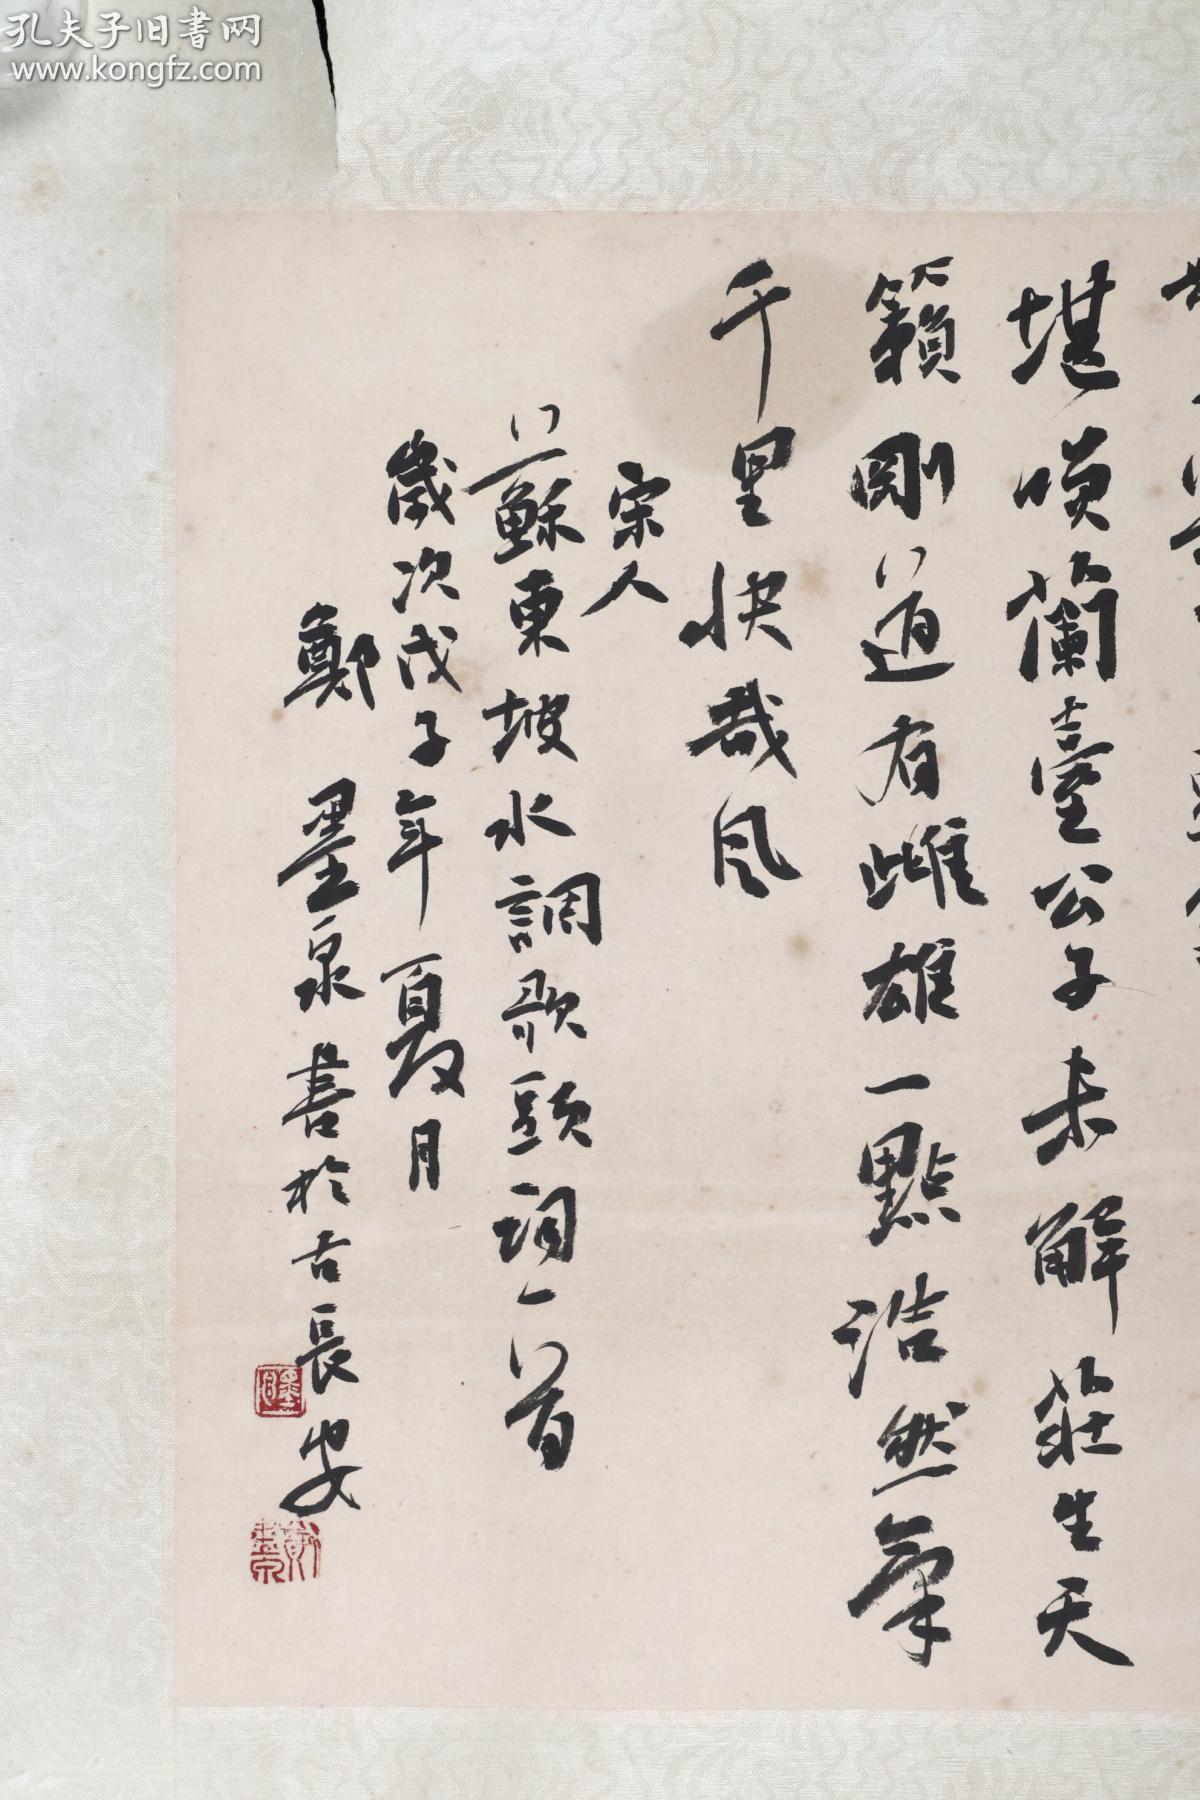 孔夫子旧書网
www.kongfz.com
堪嘆蘭臺公子未解莊生天
籟剛道有雌雄一點浩然氣
千里快哉风
宋人
蘇東坡水調歌頭詞一首
歲次戊子年夏月
鄭墨泉書於古長安